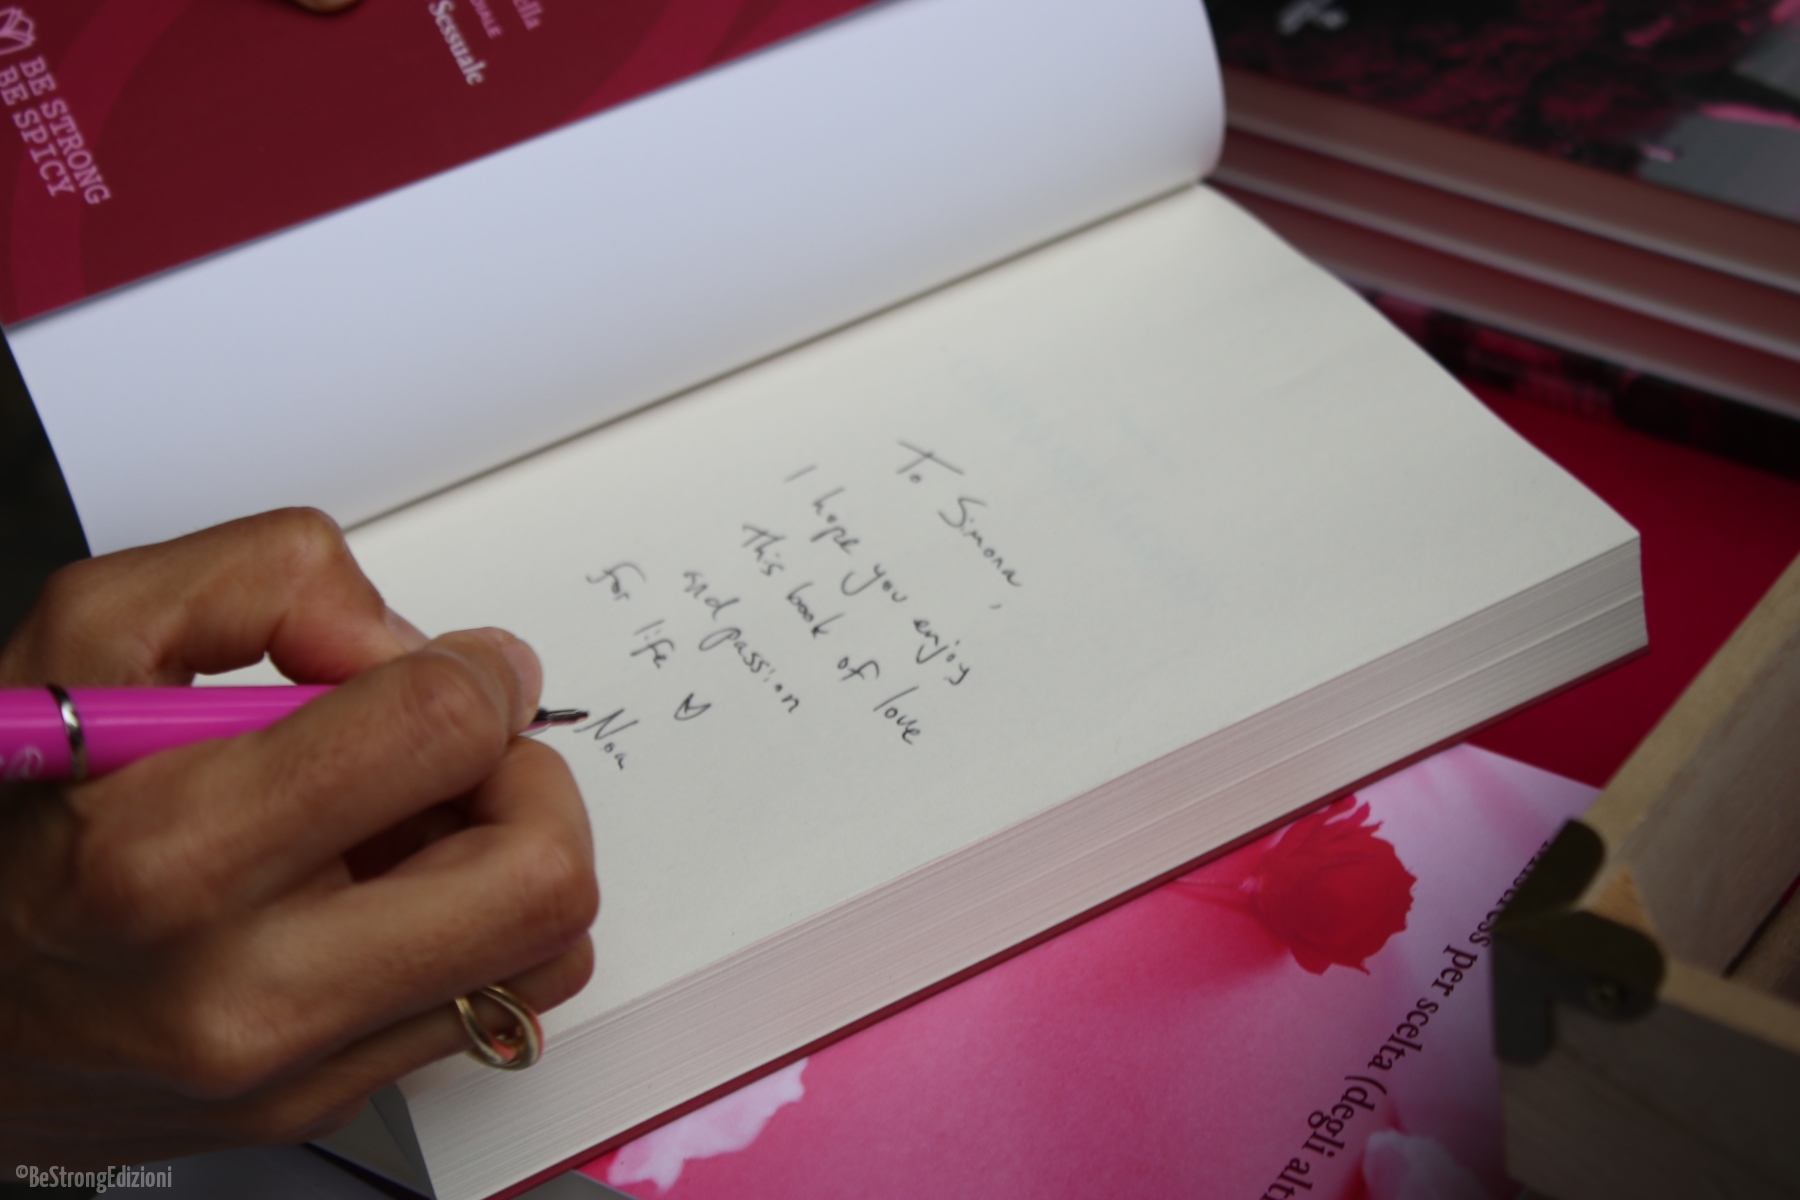 BE STRONG
BE SPICY
ella
Sessuale
To Simona,
I hope you enjoy
this book of love
and passion
for life
Noa
per scelta (degli altri
©BeStrongEdizioni